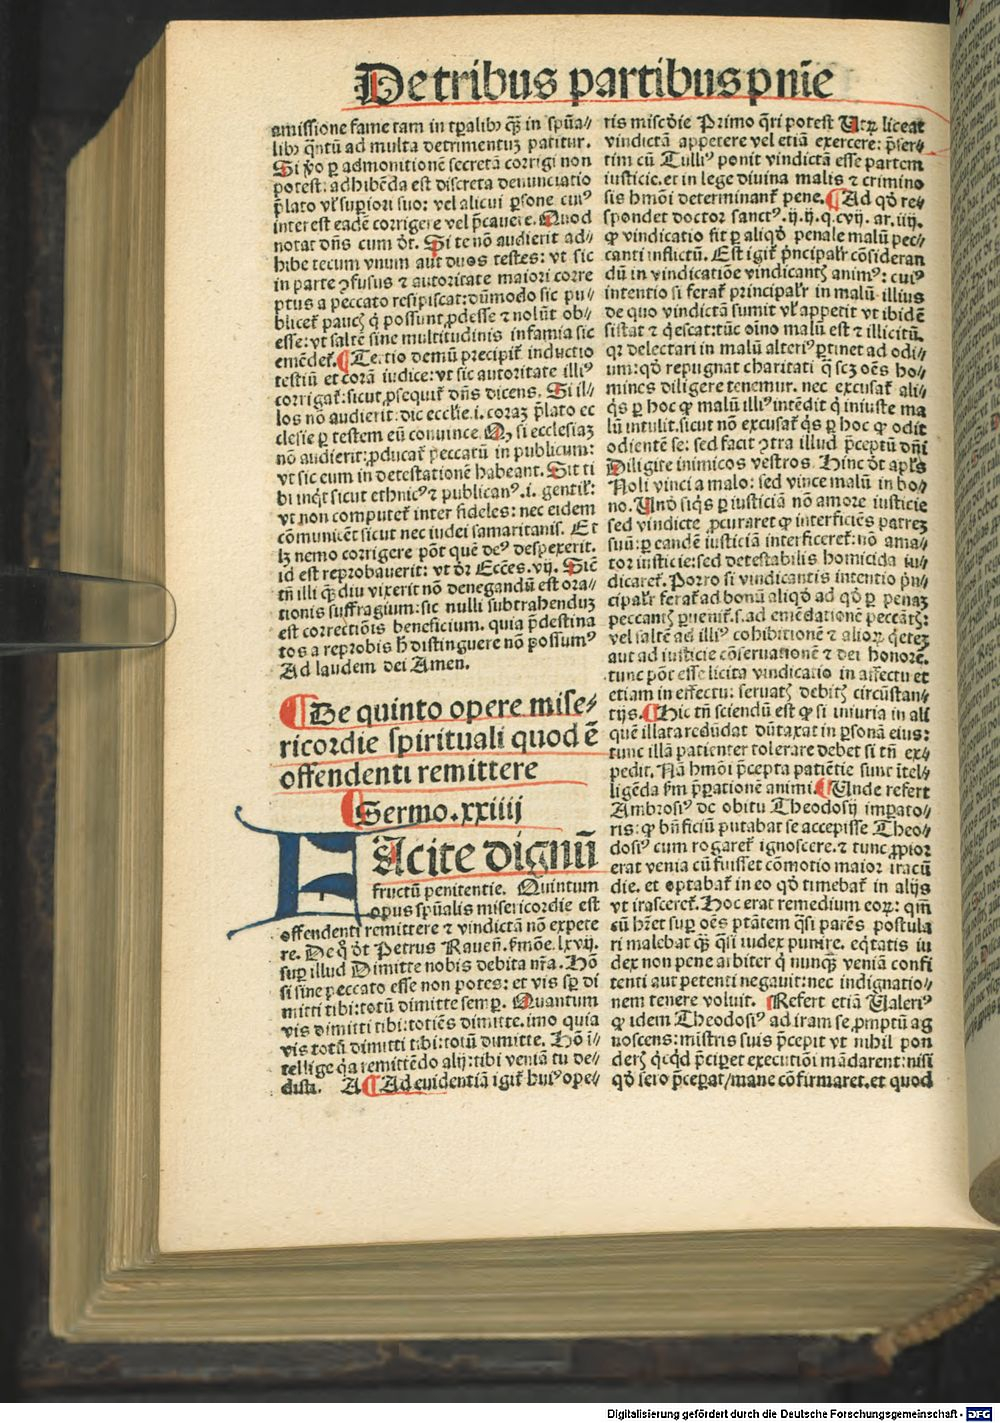 De tribus partibus pnīe
amissione fame tam in tꝑalibꝰ qꝫ̄ in spūa⸗
libꝰ q̄ntū ad multa detrimentuꝫ patitur.
Si ꝟo ꝑ admonitionē secretā corrigi non
potest: adhibēda est discreta denunciatio
p̄lato vl̓ suꝑiori suo: vel alicui ꝑsone cuiꝰ
interest eadē corrigere vel p̄cauere. Quod
notat dn̄s cum dt̄. Si te nō audierit ad⸗
hibe tecum vnum aut duos testes: vt sic
in parte ꝯfusus ⁊ autoritate maiori corre
ptus a peccato resipiscat: dūmodo sic pu⸗
blicet̉ paucꝭ q̇ possunt ꝓdesse ⁊ nolūt ob⸗
esse: vt saltē sine multitudinis infamia sic
emēdet̉. ¶ Tertio demū precipit̉ inductio
testiū et corā iudice: vt sic autoritate illiꝰ
corrigat̉: sicut ꝓsequit̉ dn̄s dicens. Si il⸗
los nō audierit: dic eccl̓ie .i. coraꝫ p̄lato ec
clesie ꝑ testem eū conuince. Qꝫ si ecclesiaꝫ
nō audierit: ꝓducat̉ peccatū in publicum:
vt sic eum in detestationē habeant. Sit ti
bi inq̇t sicut ethnicꝰ ⁊ publicanꝰ .i. gentil̓:
vt non computet̉ inter fideles: nec eidem
cōmunicēt sicut nec iudei samaritanis. Et
lꝫ nemo corrigere pōt quē deꝰ despexerit.
id est reprobauerit: vt dr̄ Ecc̄es. vij. Sic̄
tn̄ illi qꝫ̄ diu vixerit nō denegandū est ora⸗
tionis suffragium: sic nulli subtrahenduꝫ
est correctiōis beneficium. quia p̄destina
tos a reprobis h̄ distinguere nō possumꝰ
Ad laudem dei Amen.
¶ De quinto opere mise⸗
ricordie spirituali quod ē
offendenti remittere
¶ Sermo. xxiiij
FAcite dignū
fructū penitentie. Quintum
opus spūalis misericordie est
offendenti remittere ⁊ vindictā nō expete
re. De q̊ dt̄ Petrus Rauen̄. s̄mōe. lxvij.
suꝑ illud Dimitte nobis debita nr̄a. Hō
si sine peccato esse non potes: et vis sꝑ di
mitti tibi: totū dimitte semꝑ. Quantum
vis dimitti tibi: totiēs dimitte. imo quia
vis totū dimitti tibi: totū dimitte. Hō ī⸗
tellige q̇a remittēdo alij: tibi veniā tu de⸗
disti. A ¶ Ad euidentiā igit̉ huiꝰ ope⸗
ris misc̄die Primo q̄ri potest Utꝝ liceat
vindictā appetere vel etiā exercere: p̄ser⸗
tim cū Tulliꝰ ponit vindictā esse partem
iusticie. et in lege diuina malis ⁊ crimino
sis hmōi determinant̉ pene. ¶ Ad qd̓ re⸗
spondet doctor sanctꝰ. ij. ij. q. cvij. ar. iiij.
ꝙ vindicatio fit ꝑ aliqd̓ penale malū pec⸗
canti inflictū. Est igit̉ p̄ncipalr̓ cōsideran
dū in vindicatiōe vindicantꝭ animꝰ: cuiꝰ
intentio si ferat̉ principalr̓ in malū illius
de quo vindictā sumit vl̓ appetit vt ibidē
sistat ⁊ q̇escat: tūc oīno malū est ⁊ illicitū.
qꝛ delectari in malū alteriꝰ ꝑtinet ad odi⸗
um: qd̓ repugnat charitati q̄ scꝫ oēs ho⸗
mines diligere tenemur. nec excusat̉ ali⸗
q̇s ꝑ hoc ꝙ malū illiꝰ intēdit q̇ iniuste ma
lū intulit. sicut nō excusat̉ q̇s ꝑ hoc ꝙ odit
odientē se: sed facit ꝯtra illud p̄ceptū dn̄i
Diligite inimicos vestros. Hinc dt̄ apl̓s
Noli vinci a malo: sed vince malū in bo⸗
no. Un̄ si q̇s ꝑ iusticiā nō amore iusticie
sed vindicte ꝓcuraret ꝙ interficiēs patreꝫ
suū: ꝑ eandē iusticiā interficeret̉: nō ama⸗
tor iusticie: sed detestabilis homicida iu⸗
dicaret̉. Porro si vindicantis intentio p̄n⸗
cipalr̓ ferat̉ ad bonū aliqd̓ ad qd̓ ꝑ penaꝫ
peccantꝭ ꝑuenit̉. s. ad emēdationē peccātꝭ:
vel saltē ad illiꝰ cohibitionē ⁊ alioꝝ q̇eteꝫ
aut ad iusticie cōseruationē ⁊ dei honorē.
tunc pōt esse licita vindicatio in affectu et
etiam in effectu: seruatꝭ debitꝭ circūstan⸗
tijs. ¶ Hic tn̄ sciendū est ꝙ si iniuria in ali
quē illata redūdat dūtaxat in ꝑsonā eius:
tunc illā patienter tolerare debet si tn̄ ex⸗
pedit. Nā hmōi p̄cepta patiētie sunt ītel⸗
ligēda s̄m p̄ꝑationē animi. ¶ Unde refert
Ambrosiꝰ de obitu Theodosij imꝑato⸗
ris: ꝙ bn̄ficiū putabat se accepisse Theo⸗
dosiꝰ cum rogaret̉ ignoscere. ⁊ tunc ꝓpior
erat venia cū fuisset cōmotio maior iracū
die. et optabat̉ in eo qd̓ timebat̉ in alijs
vt irasceret̉. Hoc erat remedium eoꝝ: qm̄
cū hr̄et suꝑ oēs ptātem q̄si parēs postula
ri malebat qꝫ̄ q̄si iudex punire. eq̇tatis iu
dex non pene arbiter q̇ nunqꝫ̄ veniā confi
tenti aut petenti negauit: nec indignatio⸗
nem tenere voluit. ¶ Refert etiā Ualeriꝰ
ꝙ idem Theodosiꝰ ad iram se ꝓmptū ag
noscens: mīstris suis p̄cepit vt nihil pon
derꝭ q̇cqd̓ p̄ciꝑet executiōi mādarent: nisi
qd̓ sero p̄ceꝑat/ mane cōfirmaret. et quod
Digitalisierung gefördert durch die Deutsche Forschungsgemeinschaft - DFG